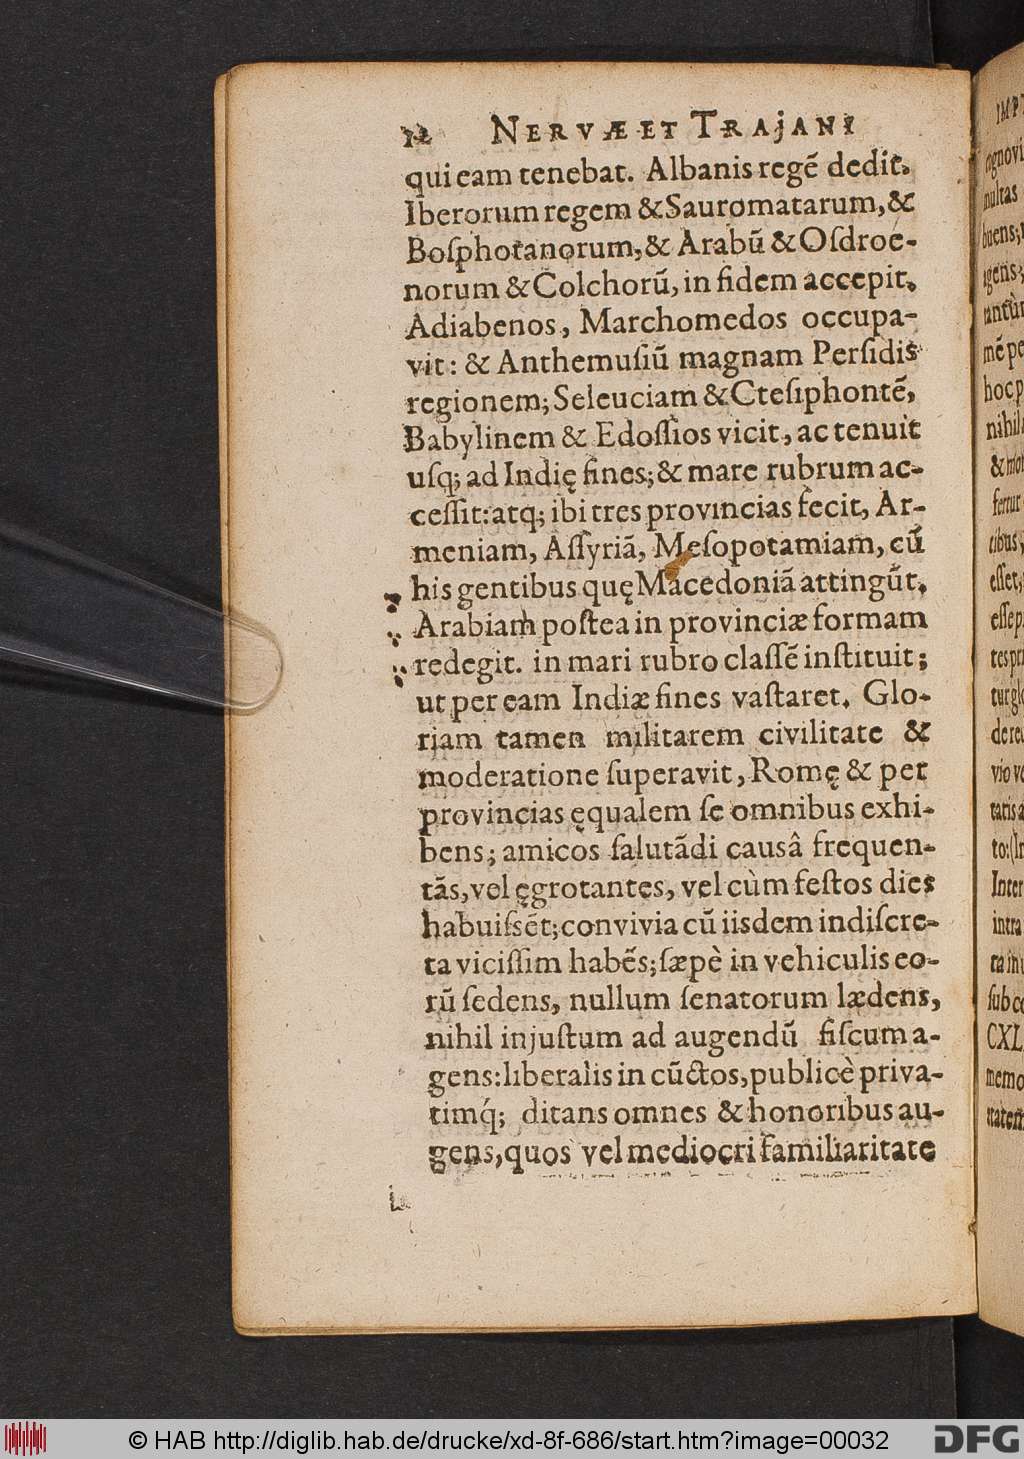 12 NERVÆ ET TRAJANI
qui eam tenebat. Albanis regẽ dedit.
Iberorum regem & Sauromatarum, &
Boſphotanorum, & Arabũ & Oſdroe-
norum & Colchorũ, in fidem accepit.
Adiabenos, Marchomedos occupa-
vit: & Anthemuſiũ magnam Perſidis
regionem; Seleuciam & Cteſiphontẽ,
Babylinem & Edoſſios vicit, ac tenuit
uſq; ad Indię fines; & mare rubrum ac-
ceſſit: atq; ibi tres provincias fecit, Ar-
meniam, Aſſyriã, Meſopotamiam, cũ
his gentibus quę Macedoniã attingũt.
Arabiam poſtea in provinciæ formam
redegit. in mari rubro claſſẽ inſtituit;
ut per eam Indiæ fines vaſtaret. Glo-
riam tamen militarem civilitate &
moderatione ſuperavit, Romę & per
provincias ęqualem ſe omnibus exhi-
bens; amicos ſalutãdi causâ frequen-
tãs, vel ęgrotantes, vel cùm feſtos dies
habuiſsẽt; convivia cũ iisdem indiſcre-
ta viciſſim habẽs; ſæpè in vehiculis eo-
rũ ſedens, nullum ſenatorum lædens,
nihil injuſtum ad augendũ fiſcum a-
gens: liberalis in cũctos, publicè priva-
timq́; ditans omnes & honoribus au-
gens, quos vel mediocri familiaritate
© HAB http://diglib.hab.de/drucke/xd-8f-686/start.htm?image=00032
DFG